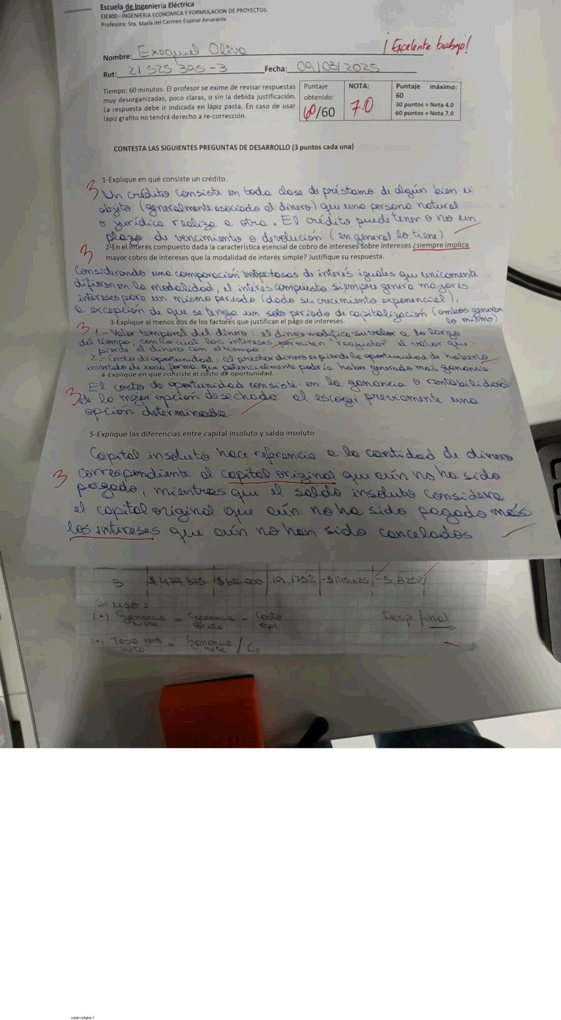 Escuela de Ingeniería Eléctrica
EIE400 - INGENIERIA ECONOMICA Y FORMULACION DE PROYECTOS
Profesora: Sra. María del Carmen Espinal Amarante
¡Excelente trabajo!
Nombre: Exequiel Oliva
Rut: 21 525 395-3 Fecha: 09/03/2025
Tiempo: 60 minutos. El profesor se exime de revisar respuestas
muy desorganizadas, poco claras, o sin la debida justificación.
La respuesta debe ir indicada en lápiz pasta. En caso de usar
lápiz grafito no tendrá derecho a re-corrección.
Puntaje obtenido: 60/60
NOTA: 7.0
Puntaje máximo:
60
30 puntos = Nota 4.0
60 puntos = Nota 7.0
CONTESTA LAS SIGUIENTES PREGUNTAS DE DESARROLLO (3 puntos cada una)
1-Explique en qué consiste un crédito.
3 Un crédito consiste en toda clase de préstamo de algún bien u
objeto (generalmente asociado al dinero) que una persona natural
o jurídica realiza a otra. El crédito puede tener o no un
plazo de vencimiento o devolución (en general lo tiene)
3 2-En el interés compuesto dada la característica esencial de cobro de intereses sobre intereses ¿siempre implica
mayor cobro de intereses que la modalidad de interés simple? Justifique su respuesta.
Considerando una comparación entre tasas de interés iguales que unicamente
difieren en la modalidad, el interés compuesto siempre genera mayores
intereses para un mismo periodo (dado su crecimiento exponencial),
a excepción de que se tenga un solo periodo de capitalización (ambos generan
lo mismo)
3-Explique al menos dos de los factores que justifican el pago de intereses.
3 1.- Valor temporal del dinero: el dinero modifica su valor a lo largo
del tiempo, con lo cual los intereses permiten "reajustar" el valor que
pierde el dinero con el tiempo
2.- Costo de oportunidad, al prestar dinero se pierde la oportunidad de haberlo
invertido de una forma que potencialmente podría haber generado más ganancia
4-Explique en que consiste el costo de oportunidad
3 El costo de oportunidad consiste en la ganancia o rentabilidad
de la mejor opción desechada al escoger previamente una
opción determinada
5-Explique las diferencias entre capital insoluto y saldo insoluto
Capital insoluto hace referencia a la cantidad de dinero
3 correspondiente al capital original que aún no ha sido
pagado, mientras que el saldo insoluto considera
el capital original que aún no ha sido pagado más
los intereses que aún no han sido cancelados
3
Si uso:
(*) Ganancia neta = Ganancia bruta - Costo
Desp final
(*) Tasa rent neta = Ganancia neta / Co